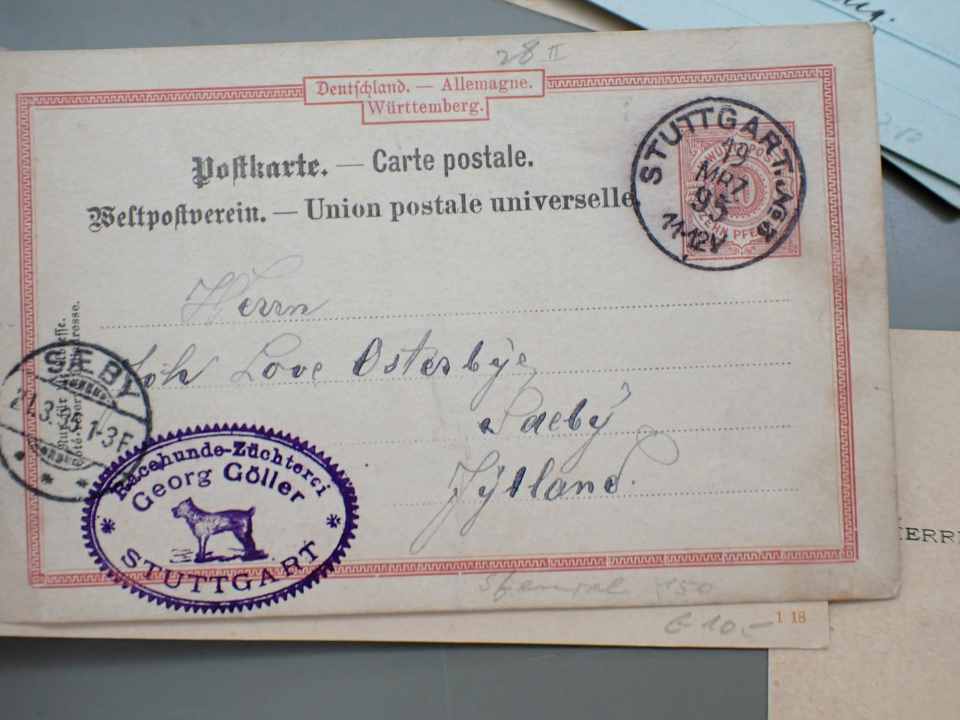 28 II
Deutschland. — Allemagne.
Württemberg.
Postkarte. — Carte postale.
Weltpostverein. — Union postale universelle.
STUTTGART. No 3
19
MRZ
95
11-12V
ZEHN PFEN
Herrn
Joh Love Osterbÿe
Saebÿ
Jÿlland.
SÆBY
21.3.95 1-3E
Racehunde-Züchterei
Georg Göller
STUTTGART
150
€ 10.-
1 18
HERR